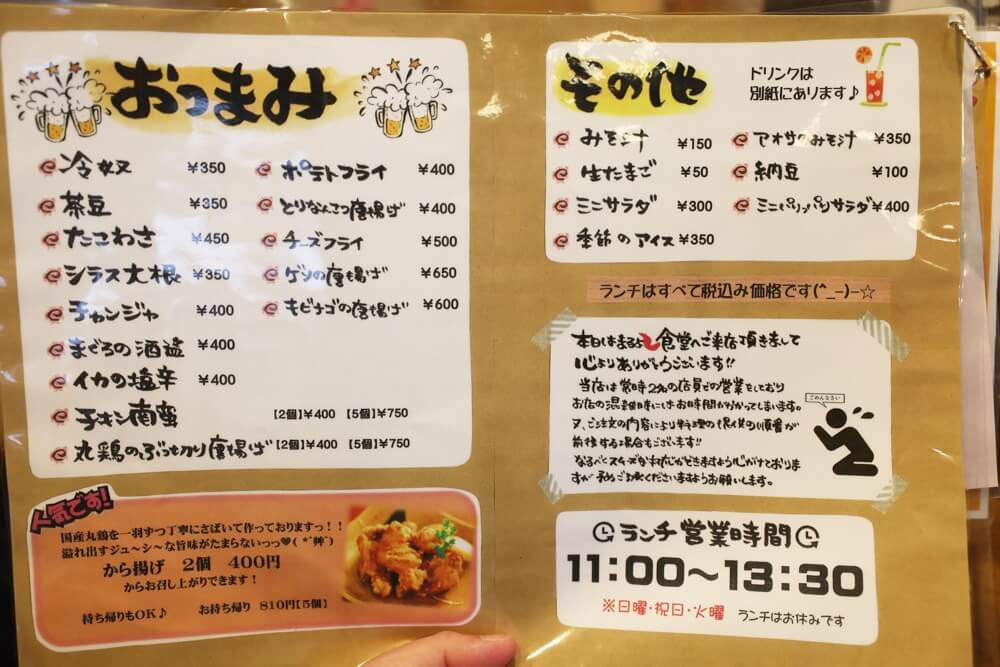 おつまみ
冷奴 ¥350
茶豆 ¥350
たこわさ ¥450
シラス大根 ¥350
チャンジャ ¥400
まぐろの酒盗 ¥400
イカの塩辛 ¥400
チキン南蛮 【2個】¥400 【5個】¥750
丸鶏のぶつ切り唐揚げ 【2個】¥400 【5個】¥750
ポテトフライ ¥400
とりなんこつ唐揚げ ¥400
チーズフライ ¥500
ゲソの唐揚げ ¥650
キビナゴの唐揚げ ¥600
人気です!
国産丸鶏を一羽ずつ丁寧にさばいて作っておりますっ!!
溢れ出すジュ〜シ〜な旨味がたまらないっっ♥( *´艸`)
から揚げ 2個 400円
からお召し上がりできます!
持ち帰りもOK♪ お持ち帰り 810円【5個】
その他
ドリンクは
別紙にあります♪
みそ汁 ¥150
生たまご ¥50
ミニサラダ ¥300
季節のアイス ¥350
アオサのみそ汁 ¥350
納豆 ¥100
ミニパリッパリサラダ ¥400
ランチはすべて税込み価格です(^_−)−☆
本日はまるよし食堂へご来店頂きまして
心よりありがとうございます!!
当店は常時2名の店員での営業をしており
お店の混雑時にはお時間がかかってしまいます。
又、ご注文の内容により料理の提供の順番が
前後する場合もございます!!
なるべくスムーズな対応ができますよう心がけておりま
すが予めご了承くださいますようお願いします。
ごめんなさい
ランチ営業時間
11:00〜13:30
※日曜・祝日・火曜 ランチはお休みです